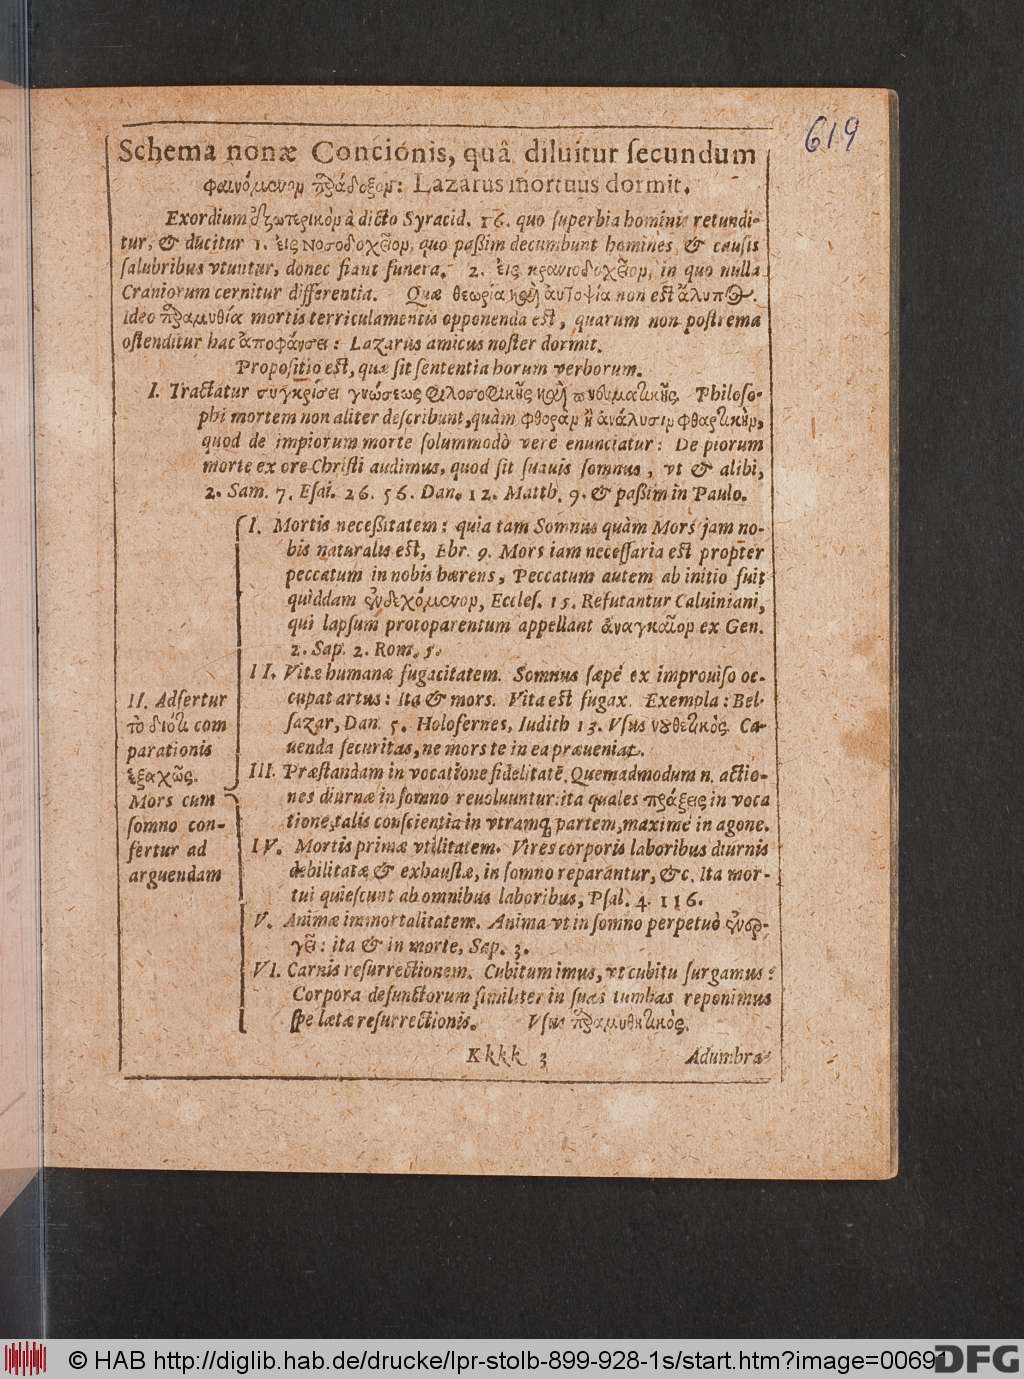 619
Schema nonæ Concionis, quâ diluitur secundum
φαινόμενον παράδοξον: Lazarus mortuus dormit.
Exordium ἐξωτερικὸν à dicto Syracid. 16. quo superbia hominis retundi-
tur, & ducitur 1. εἰς νοσοδοχεῖον, quo paßim decumbunt homines, & causis
salubribus vtuntur, donec fiant funera. 2. εἰς κρανιοδοχεῖον, in quo nulla
Craniorum cernitur differentia. Quæ θεωρία καὶ αὐτοψία non est ἄλυπος.
Ideo παραμυθία mortis terriculamentis opponenda est, quarum non postrema
ostenditur hac ἀποφάνσει: Lazarus amicus noster dormit.
Propositio est, quæ sit sententia horum verborum.
I. Tractatur συγκρίσει γνώσεως φιλοσοφικῆς καὶ πνευματικῆς. Philoso-
phi mortem non aliter describunt, quàm φθορὰν ἢ ἀνάλυσιν φθαρτικὴν,
quod de impiorum morte solummodò verè enunciatur: De piorum
morte ex ore Christi audimus, quod sit suauis somnus, vt & alibi,
2. Sam. 7. Esai. 26. 56. Dan. 12. Matth. 9. & paßim in Paulo.
II. Adfertur
τὸ διότι com
parationis
ἑξαχῶς.
Mors cum
somno con-
fertur ad
arguendam
I. Mortis neceßitatem: quia tam Somnus quàm Mors jam no-
bis naturalis est, Ebr. 9. Mors iam necessaria est propter
peccatum in nobis hærens, Peccatum autem ab initio fuit
quiddam ἐνδεχόμενον, Eccles. 15. Refutantur Caluiniani,
qui lapsum protoparentum appellant ἀναγκαῖον ex Gen.
2. Sap. 2. Rom. 5.
II. Vitæ humanæ fugacitatem. Somnus sæpè ex improuiso oc-
cupat artus: Ita & mors. Vita est fugax. Exempla: Bel-
sazar, Dan. 5. Holofernes, Iudith 13. Vsus νουθετικὸς. Ca-
uenda securitas, ne mors te in ea præueniat.
III. Præstandam in vocatione fidelitatē. Quemadmodum n. actio-
nes diurnæ in somno reuoluuntur: ita quales πράξεις in voca
tione, talis conscientia in vtramq; partem, maximè in agone.
IV. Mortis primæ vtilitatem. Vires corporis laboribus diurnis
debilitatæ & exhaustæ, in somno reparantur, &c. Ita mor-
tui quiescunt ab omnibus laboribus, Psal. 4. 116.
V. Animæ immortalitatem. Anima vt in somno perpetuò ἐνερ-
γεῖ: ita & in morte, Sap. 3.
VI. Carnis resurrectionem. Cubitum imus, vt cubitu surgamus:
Corpora defunctorum similiter in suas tumbas reponimus
spe lætæ resurrectionis. Vsus παραμυθητικὸς.
Kkkk 3 Adumbra-
© HAB http://diglib.hab.de/drucke/lpr-stolb-899-928-1s/start.htm?image=00691
DFG